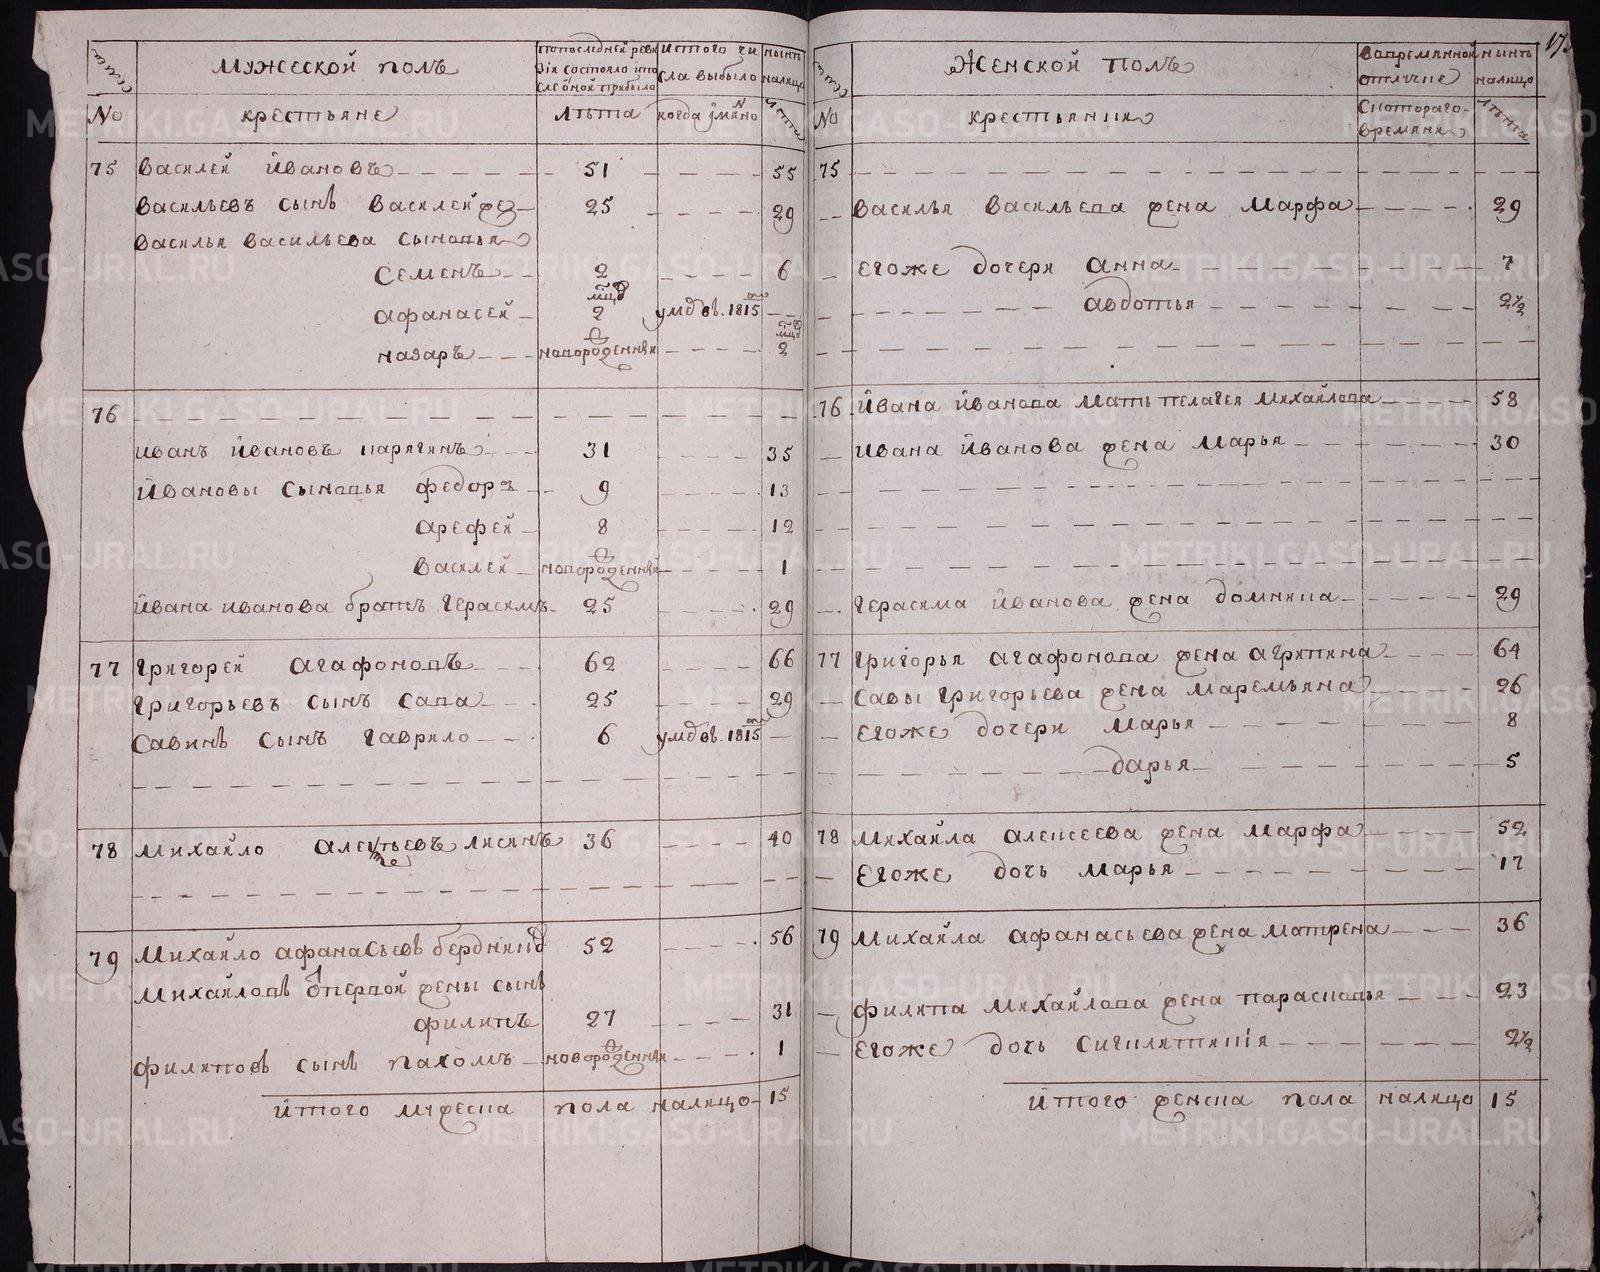 семьи
мужеской полъ
попоследней реви
зiи состояло ипо
сле оной прибыло
изтого чи
сла выбыло
нынѣ
налицо
No
крестьяне
лѣта
когда имяно
лѣта
75 Василей Ивановъ 51 55
Васильевъ сынъ Василей же 25 29
Василья Васильева сыновья
Семенъ 2 6
Афанасей мцд 2 умр въ 1815
Назаръ новорожденныи мцд 2
76
Иванъ Ивановъ карягинъ 31 35
Ивановы сыновья Федоръ 9 13
Арефей 8 12
Василей новорожденныи 1
Ивана Иванова братъ Герасимъ 25 29
77 Григорей Агафоновъ 62 66
Григорьевъ сынъ Сава 25 29
Савинъ сынъ Гаврило 6 умр въ 1815
78 Михайло Алексеевъ лисинъ 36 40
79 Михайло Афанасьевъ бердникъ 52 56
Михайловъ отпервой жены сынъ
Филипъ 27 31
Филиповъ сынъ Пахомъ новорожденныи 1
Итого мужеска пола налицо 15
семьи
Женской полъ
вовременной
отлучке
нынѣ
налицо
No
крестьянки
скотораго
времяни
лѣта
75
Василья Васильева жена Марфа 29
Егоже дочери Анна 7
Авдотья 2½
76 Ивана Иванова мать пелагея Михайлова 58
Ивана Иванова жена Марья 30
Герасима Иванова жена Домника 29
77 Григорья Агафонова жена Агрипина 64
Савы Григорьева жена Маремьяна 26
Егоже дочери Марья 8
Дарья 5
78 Михайла Алексеева жена Марфа 52
Егоже дочь Марья 17
79 Михайла Афанасьева жена Матрена 36
Филипа Михайлова жена парасковья 23
Егоже дочь Сигклитикiя 2½
Итого женска пола налицо 15
METRIKI.GASO-URAL.RU